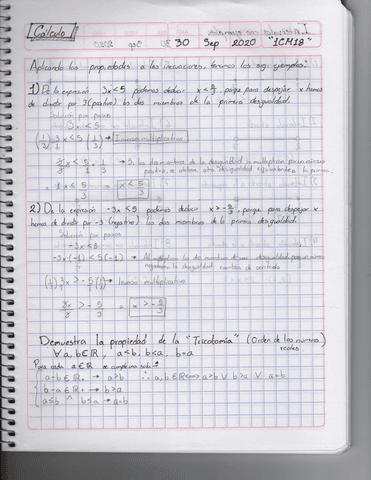 Cálculo
30 Sep 2020 "1CM18"
Aplicando las propiedades a las inecuaciones, veamos los sig. ejemplos:
1) De la expresión 3x<5 podemos deducir x<5/3, porque para despejar x hemos
de dividir por 3 (positivo) los dos miembros de la primera desigualdad.
Solución por pasos
3x<5
(1/3) 3x<5 (1/3) → Inverso multiplicativo
3x/3 < 5/1 · 1/3 → Si los dos miembros de la desigualdad se multiplican por un número
positivo, se obtiene otra desigualdad equivalente a la primera.
= 1x<5/3 = x<5/3
2) De la expresión -3x<5 podemos deducir x>-5/3, porque para despejar x
hemos de dividir por -3 (negativo) los dos miembros de la primera desigualdad.
Solución por pasos
-3x<5
-3x(-1)<5(-1) → Al multiplicar los dos miembros de una desigualdad por un número
negativo, la desigualdad cambia de sentido
(1/3) 3x>-5 (1/3) → Inverso multiplicativo
3x/3 > -5/3 = x>-5/3
Demuestra la propiedad de la "Tricotomía" (Orden de los números
reales)
∀ a,b∈ℝ, a≤b, b<a, b=a
Para cada a∈ℝ se cumple una sola:
a-b∈ℝ+ → a>b ∴ a,b∈ℝ⟺a>b ∨ b>a ∨ a=b
b-a∈ℝ+ → b>a
a≤b ∧ b≤a → a=b